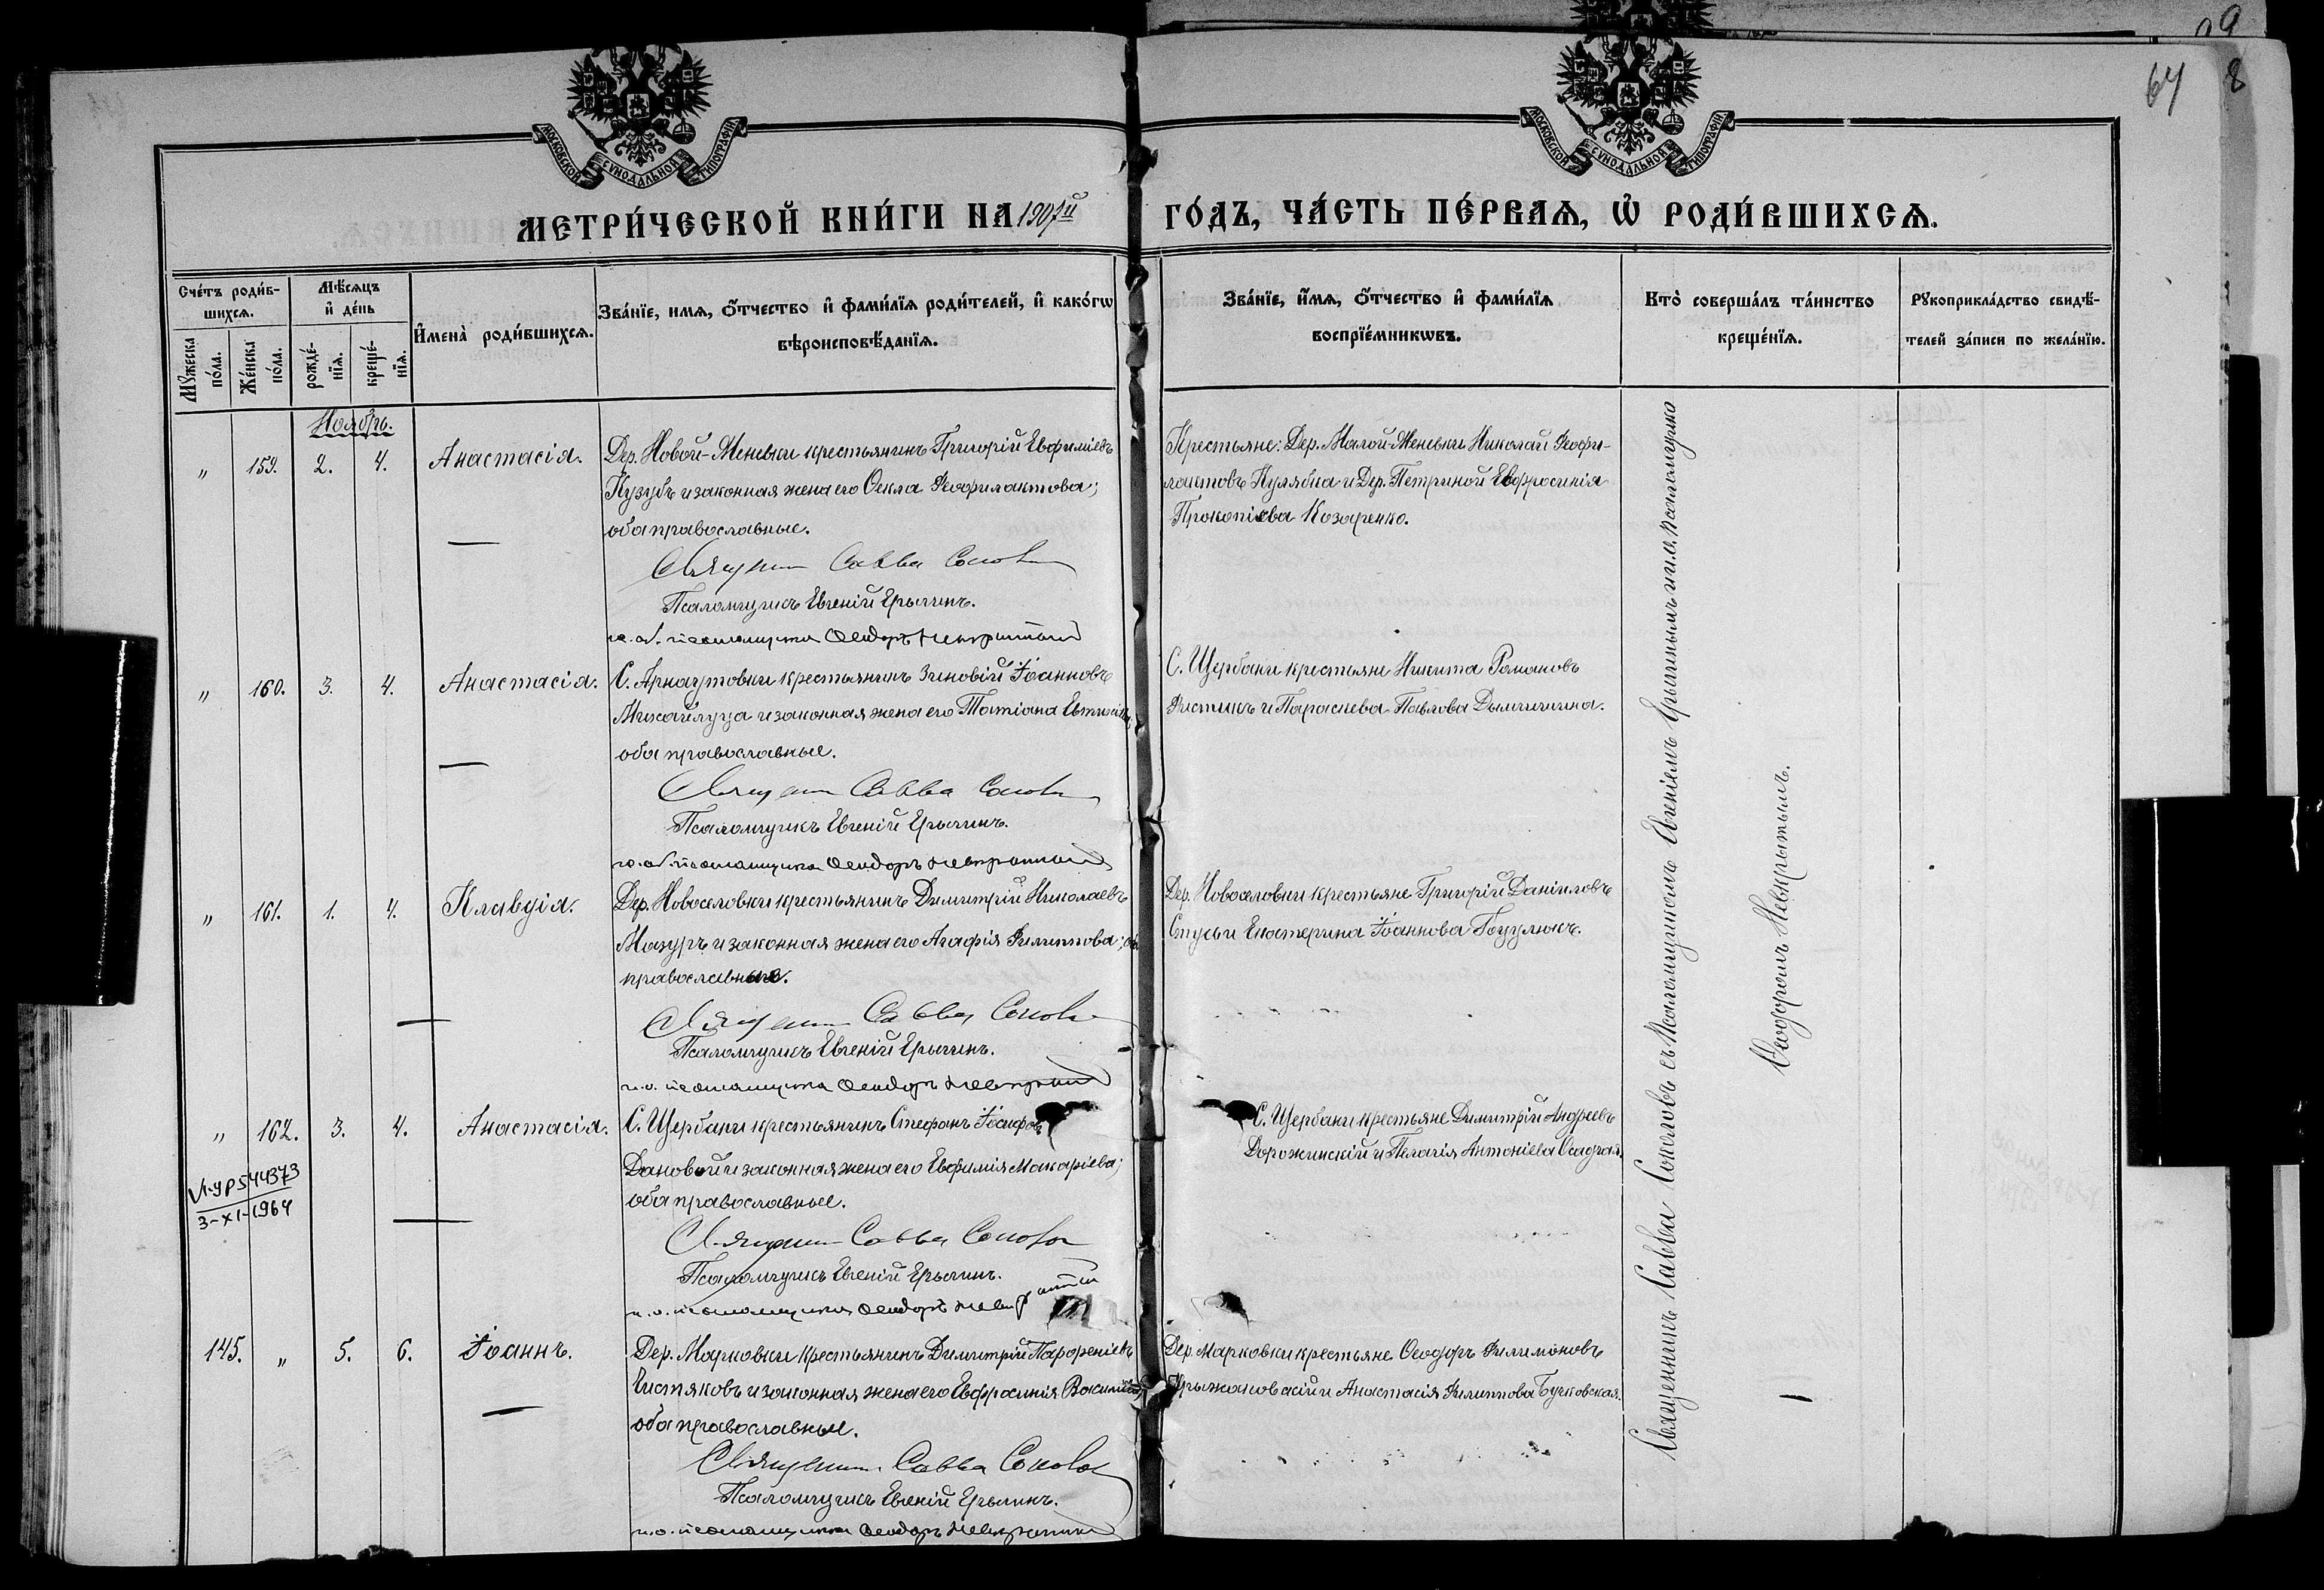 09
64
8
МОСКОВСКОЙ СѴНОДАЛЬНОЙ ТИПОГРАФІИ
МОСКОВСКОЙ СѴНОДАЛЬНОЙ ТИПОГРАФІИ
МЕТРИ́ЧЕСКОЙ КНИ́ГИ НА 1907й ГО́ДЪ, ЧА́СТЬ ПЕ́РВАѦ, Ѡ҆ РОДИ́ВШИХСѦ.
Сче́тъ роди́в-
шихсѧ.
Мꙋжеска по́ла.
Же́нска по́ла.
Мѣ́сѧцъ
и҆ де́нь
рожде́-
нїѧ.
креще́-
нїѧ.
И҆мена̀ роди́вшихсѧ.
Зва́нїе, имѧ, ѻ҆́тчество и҆ фами́лїѧ роди́телей, и҆ како́гѡ
вѣроисповѣ́данїѧ.
Зва́нїе, и҆́мѧ, ѻ҆́тчество и҆ фами́лїѧ
воспрїе́мникѡвъ.
Кто̀ соверша́лъ та́инство
креще́нїѧ.
Рꙋкоприкла́дство свидѣ́-
телей за́писи по жела́нїю.
Ноябрь.
„ 159. 2. 4. Анастасія.
Дер. Новой-Меневки крестьянинъ Григорій Евфиміевъ
Кузубъ и законная жена его Ѳекла Ѳеофилактова;
оба православные.
Священникъ Савва Соколовъ
Псаломщикъ Евгеній Ерыгинъ.
и. о. псаломщика Ѳеодоръ Невкрытый
Крестьяне: Дер. Малой-Меневки Николай Ѳеофи-
лактовъ Кулябка и Дер. Петриной Евфросинія
Прокопіева Козаренко.
„ 160. 3. 4. Анастасія.
С. Арнаутовки крестьянинъ Зиновій Іоанновъ
Михайлуца и законная жена его Татіана
оба православные.
Священникъ Савва Соколовъ
Псаломщикъ Евгеній Ерыгинъ.
и. о. псаломщика Ѳеодоръ Невкрытый
С. Щербани крестьяне Никита Романовъ
Фистикъ и Параскева Павлова Дымчишина.
„ 161. 1. 4. Клавдія.
Дер. Новоселовки крестьянинъ Димитрій Николаевъ
Мазуръ и законная жена его Агафія Филиппова; оба
православные.
Священникъ Савва Соколовъ
Псаломщикъ Евгеній Ерыгинъ.
и. о. псаломщика Ѳеодоръ Невкрытый
Дер. Новоселовки крестьяне Григорій Даніиловъ
Стусь и Екатерина Іоаннова Гоцулюкъ.
„ 162. 3. 4. Анастасія.
С. Щербани крестьянинъ Стефанъ Іосифовъ
Дановой и законная жена его Евфимія Макаріева;
оба православные.
Священникъ Савва Соколовъ
Псаломщикъ Евгеній Ерыгинъ.
и. о. псаломщика Ѳеодоръ Невкрытый
С. Щербани крестьяне Димитрій Андреевъ
Дорожинскій и Пелагія Антоніева Осадчая.
V1-УР 544373
3-XI-1964
145. „ 5. 6. Іоаннъ.
Дер. Марковки крестьянинъ Димитрій Парѳеніевъ
Чистяковъ и законная жена его Евфросинія Василіева;
оба православные.
Священникъ Савва Соколовъ
Псаломщикъ Евгеній Ерыгинъ.
и. о. псаломщика Ѳеодоръ Невкрытый
Дер. Марковки крестьяне Ѳеодоръ Филимоновъ
Крыжановскій и Анастасія Филиппова Бучковская.
Священникъ Савва Соколовъ съ Псаломщикомъ Евгеніемъ Ерыгинымъ и и. о. псаломщика
Ѳеодоромъ Невкрытымъ.